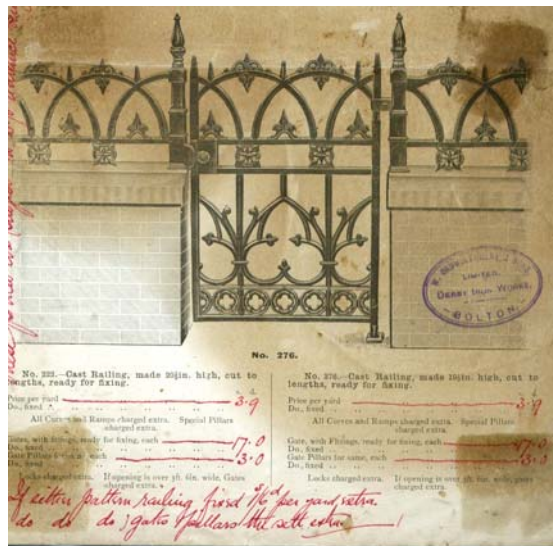 LIMITED.
DERBY IRON WORKS,
BOLTON.
No. 276.
No. 223.—Cast Railing, made 20½in. high, cut to
lengths, ready for fixing.
Price per yard 3.9
Do., fixed
All Curves and Ramps charged extra. Special Pillars
charged extra.
Gates, with fittings, ready for fixing, each 17.0
Do., fixed
Gate Pillars for each 3.0
Do., fixed
Locks charged extra. If opening is over 3ft. 6in. wide, Gates
charged extra.
No. 276.—Cast Railing, made 19½in. high, cut to
lengths, ready for fixing.
Price per yard 3.9
Do., fixed
All Curves and Ramps charged extra. Special Pillars
charged extra.
Gate, with Fittings, ready for fixing, each 17.0
Do., fixed
Gate Pillars for same, each 3.0
Do., fixed
Locks charged extra. If opening is over 3ft. 6in. wide, gates
charged extra.
If either pattern railing fixed 1/6d per yard extra
do do do gates & pillars the sett extra